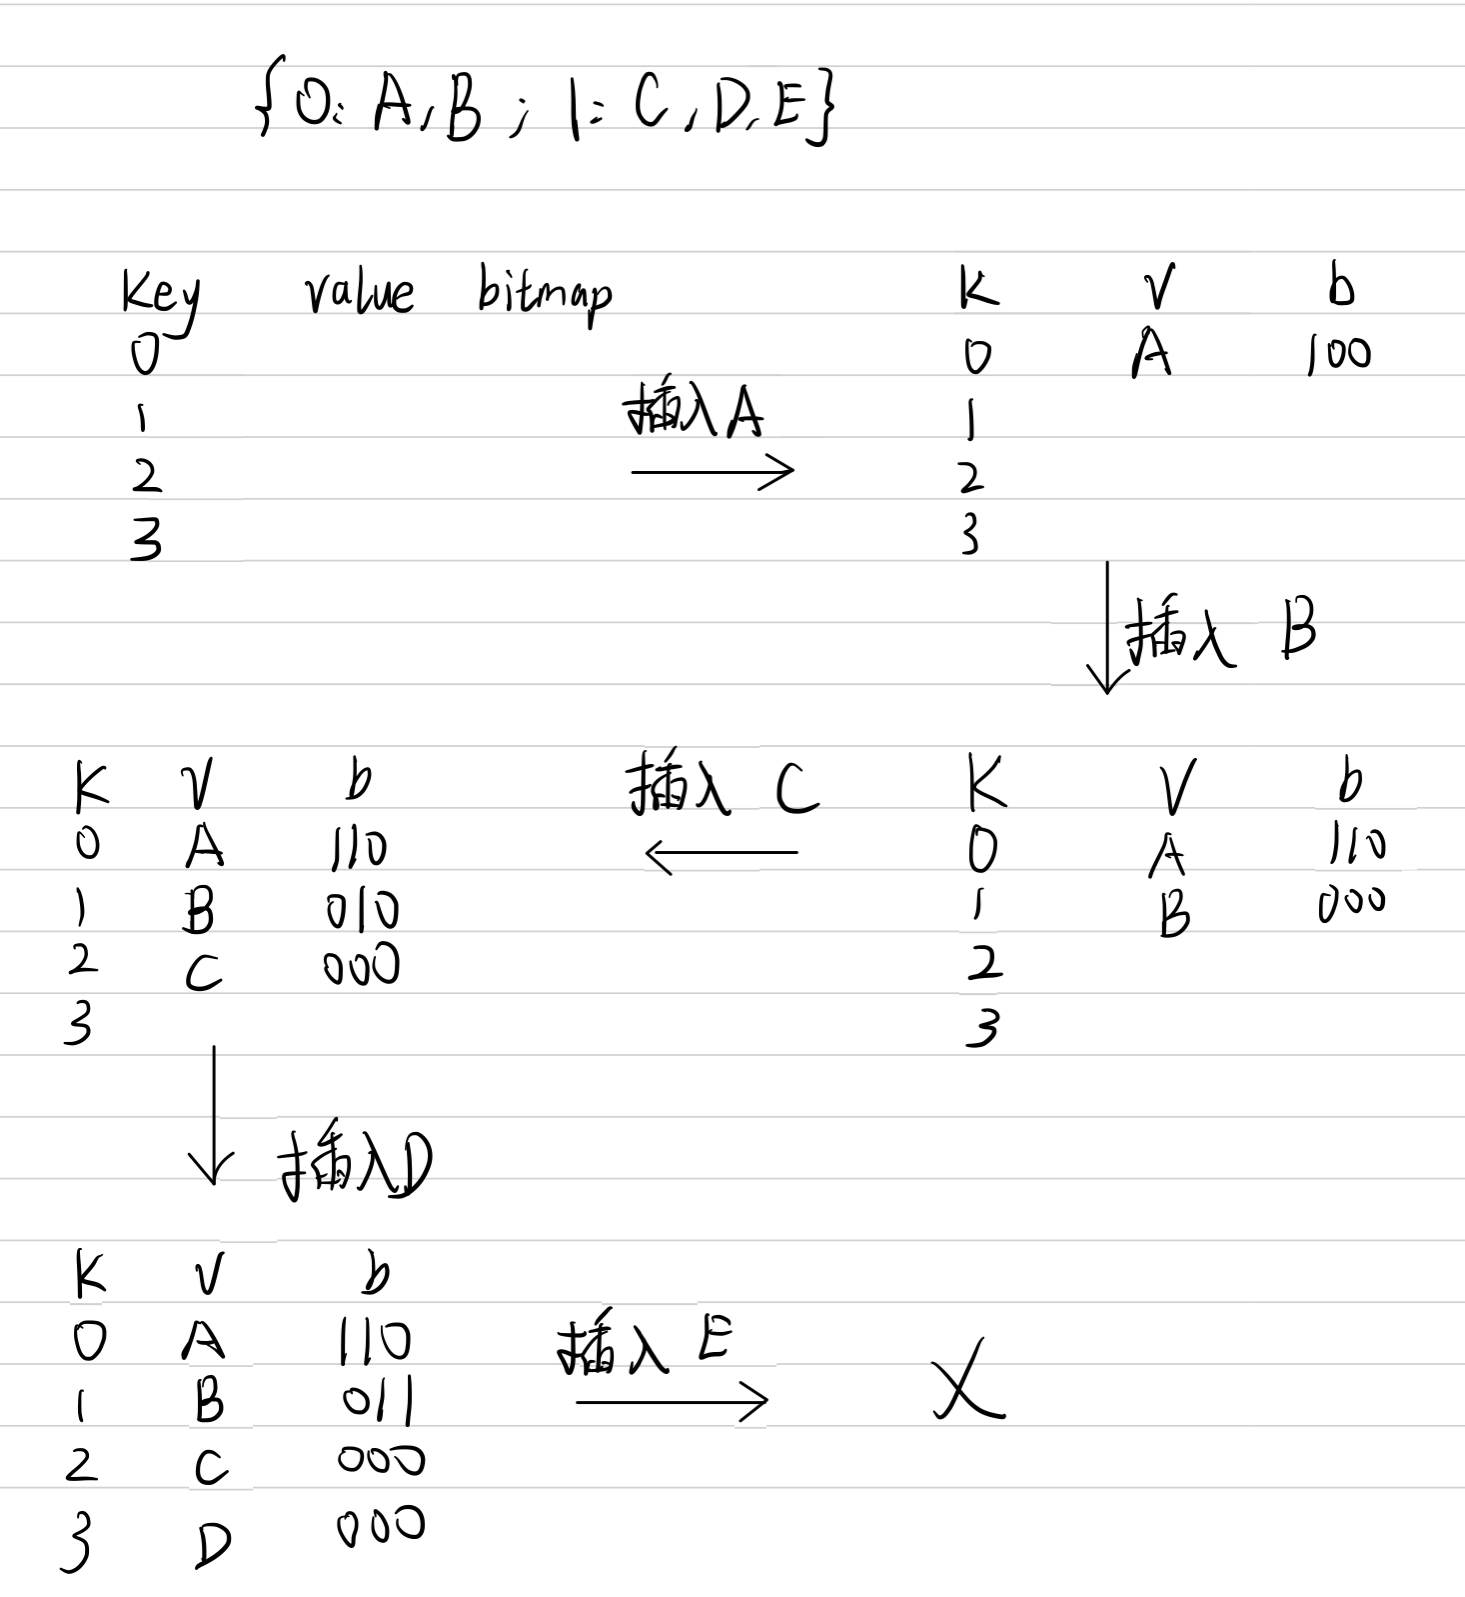 {0: A, B ; 1: C, D, E}
Key value bitmap
0
1
2
3
插入A
K V b
0 A 100
1
2
3
插入 B
K V b
0 A 110
1 B 000
2
3
插入 C
K V b
0 A 110
1 B 010
2 C 000
3
插入D
K V b
0 A 110
1 B 011
2 C 000
3 D 000
插入 E
X